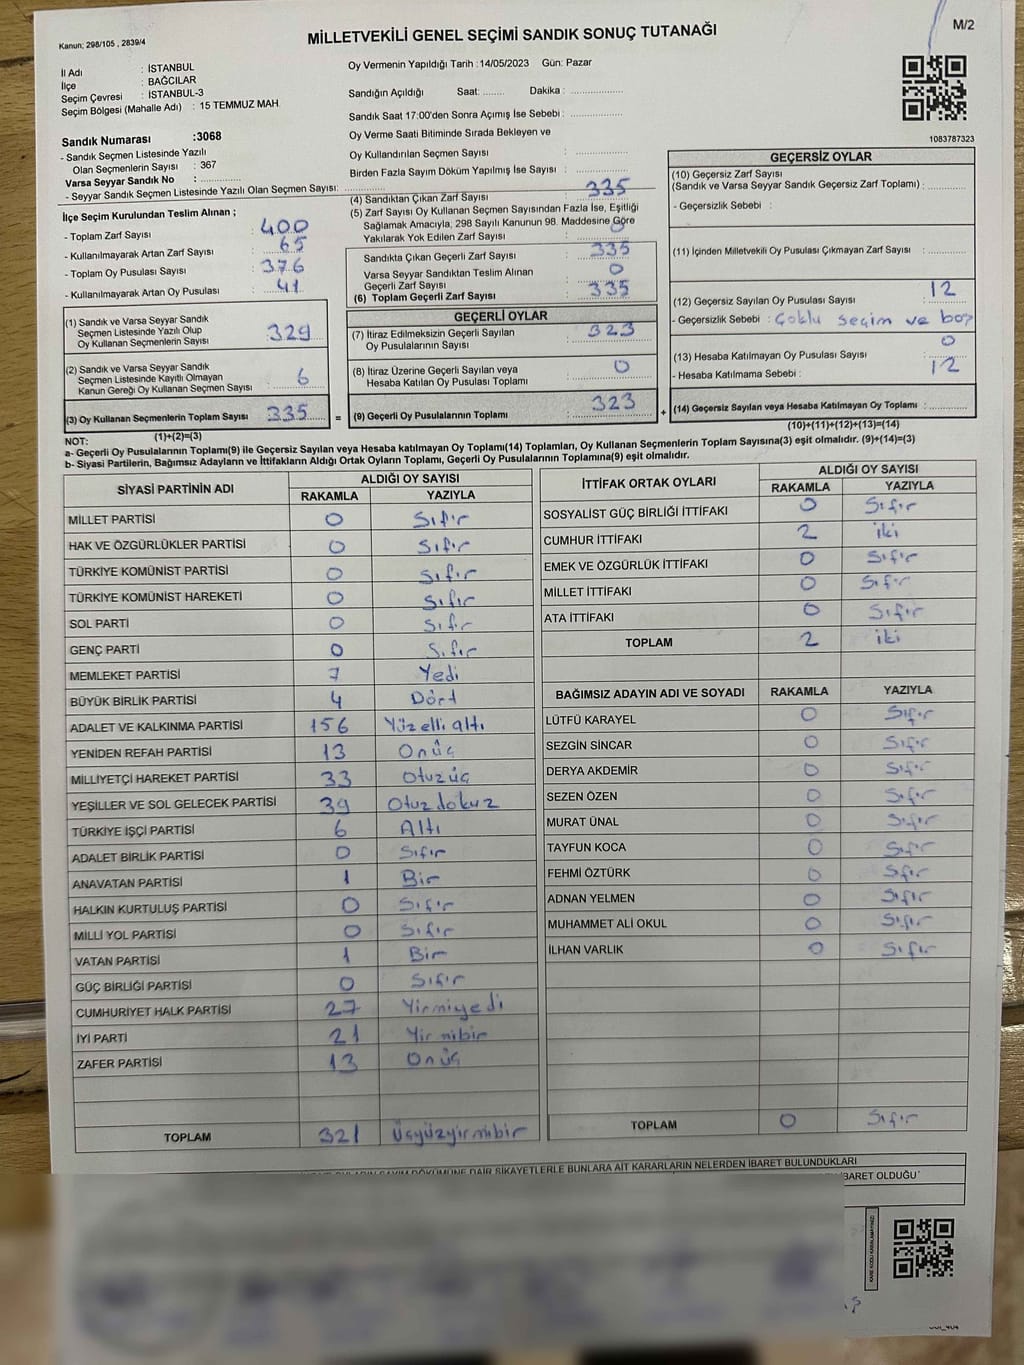 Kanun; 298/105 , 2839/4
MİLLETVEKİLİ GENEL SEÇİMİ SANDIK SONUÇ TUTANAĞI
M/2
İl Adı : İSTANBUL
İlçe : BAĞCILAR
Seçim Çevresi : İSTANBUL-3
Seçim Bölgesi (Mahalle Adı) : 15 TEMMUZ MAH.
Sandık Numarası :3068
- Sandık Seçmen Listesinde Yazılı
Olan Seçmenlerin Sayısı : 367
Varsa Seyyar Sandık No : ..................
- Seyyar Sandık Seçmen Listesinde Yazılı Olan Seçmen Sayısı: ..................
Oy Vermenin Yapıldığı Tarih :14/05/2023 Gün: Pazar
Sandığın Açıldığı Saat: ........ Dakika : ..................
Sandık Saat 17:00'den Sonra Açımış İse Sebebi : ..................
Oy Verme Saati Bitiminde Sırada Bekleyen ve
Oy Kullandırılan Seçmen Sayısı : ..................
Birden Fazla Sayım Döküm Yapılmış İse Sayısı : ..................
1083787323
İlçe Seçim Kurulundan Teslim Alınan ;
- Toplam Zarf Sayısı : 400
- Kullanılmayarak Artan Zarf Sayısı : 65
- Toplam Oy Pusulası Sayısı : 376
- Kullanılmayarak Artan Oy Pusulası : 41
(1) Sandık ve Varsa Seyyar Sandık
Seçmen Listesinde Yazılı Olup
Oy Kullanan Seçmenlerin Sayısı : 329
(2) Sandık ve Varsa Seyyar Sandık
Seçmen Listesinde Kayıtlı Olmayan
Kanun Gereği Oy Kullanan Seçmen Sayısı : 6
(3) Oy Kullanan Seçmenlerin Toplam Sayısı : 335
(4) Sandıktan Çıkan Zarf Sayısı : 335
(5) Zarf Sayısı Oy Kullanan Seçmen Sayısından Fazla İse, Eşitliği
Sağlamak Amacıyla; 298 Sayılı Kanunun 98. Maddesine Göre
Yakılarak Yok Edilen Zarf Sayısı : 0
Sandıkta Çıkan Geçerli Zarf Sayısı : 335
Varsa Seyyar Sandıktan Teslim Alınan
Geçerli Zarf Sayısı : 0
(6) Toplam Geçerli Zarf Sayısı : 335
GEÇERLİ OYLAR
(7) İtiraz Edilmeksizin Geçerli Sayılan
Oy Pusulalarının Sayısı : 323
(8) İtiraz Üzerine Geçerli Sayılan veya
Hesaba Katılan Oy Pusulası Toplamı : 0
= (9) Geçerli Oy Pusulalarının Toplamı : 323
GEÇERSİZ OYLAR
(10) Geçersiz Zarf Sayısı
(Sandık ve Varsa Seyyar Sandık Geçersiz Zarf Toplamı) : ............
- Geçersizlik Sebebi :
(11) İçinden Milletvekili Oy Pusulası Çıkmayan Zarf Sayısı : ............
(12) Geçersiz Sayılan Oy Pusulası Sayısı : 12
- Geçersizlik Sebebi : Çoklu seçim ve boş
(13) Hesaba Katılmayan Oy Pusulası Sayısı : 0
- Hesaba Katılmama Sebebi : 12
+ (14) Geçersiz Sayılan veya Hesaba Katılmayan Oy Toplamı : ............
(1)+(2)=(3)
(10)+(11)+(12)+(13)=(14)
NOT:
a- Geçerli Oy Pusulalarının Toplamı(9) ile Geçersiz Sayılan veya Hesaba katılmayan Oy Toplamı(14) Toplamları, Oy Kullanan Seçmenlerin Toplam Sayısına(3) eşit olmalıdır. (9)+(14)=(3)
b- Siyasi Partilerin, Bağımsız Adayların ve İttifakların Aldığı Ortak Oyların Toplamı, Geçerli Oy Pusulalarının Toplamına(9) eşit olmalıdır.
SİYASİ PARTİNİN ADI ALDIĞI OY SAYISI
RAKAMLA YAZIYLA
MİLLET PARTİSİ 0 Sıfır
HAK VE ÖZGÜRLÜKLER PARTİSİ 0 Sıfır
TÜRKİYE KOMÜNİST PARTİSİ 0 Sıfır
TÜRKİYE KOMÜNİST HAREKETİ 0 Sıfır
SOL PARTİ 0 Sıfır
GENÇ PARTİ 0 Sıfır
MEMLEKET PARTİSİ 7 Yedi
BÜYÜK BİRLİK PARTİSİ 4 Dört
ADALET VE KALKINMA PARTİSİ 156 Yüzelli altı
YENİDEN REFAH PARTİSİ 13 Onüç
MİLLİYETÇİ HAREKET PARTİSİ 33 Otuzüç
YEŞİLLER VE SOL GELECEK PARTİSİ 39 Otuz dokuz
TÜRKİYE İŞÇİ PARTİSİ 6 Altı
ADALET BİRLİK PARTİSİ 0 Sıfır
ANAVATAN PARTİSİ 1 Bir
HALKIN KURTULUŞ PARTİSİ 0 Sıfır
MİLLİ YOL PARTİSİ 0 Sıfır
VATAN PARTİSİ 1 Bir
GÜÇ BİRLİĞİ PARTİSİ 0 Sıfır
CUMHURİYET HALK PARTİSİ 27 Yirmiyedi
İYİ PARTİ 21 Yirmibir
ZAFER PARTİSİ 13 Onüç
TOPLAM 321 Üçyüzyirmibir
İTTİFAK ORTAK OYLARI ALDIĞI OY SAYISI
RAKAMLA YAZIYLA
SOSYALİST GÜÇ BİRLİĞİ İTTİFAKI 0 Sıfır
CUMHUR İTTİFAKI 2 iki
EMEK VE ÖZGÜRLÜK İTTİFAKI 0 Sıfır
MİLLET İTTİFAKI 0 Sıfır
ATA İTTİFAKI 0 Sıfır
TOPLAM 2 iki
BAĞIMSIZ ADAYIN ADI VE SOYADI RAKAMLA YAZIYLA
LÜTFÜ KARAYEL 0 Sıfır
SEZGİN SİNCAR 0 Sıfır
DERYA AKDEMİR 0 Sıfır
SEZEN ÖZEN 0 Sıfır
MURAT ÜNAL 0 Sıfır
TAYFUN KOCA 0 Sıfır
FEHMİ ÖZTÜRK 0 Sıfır
ADNAN YELMEN 0 Sıfır
MUHAMMET ALİ OKUL 0 Sıfır
İLHAN VARLIK 0 Sıfır
TOPLAM 0 Sıfır
DÖKÜMÜNE DAİR ŞİKAYETLERLE BUNLARA AİT KARARLARIN NELERDEN İBARET BULUNDUKLARI
İBARET OLDUĞU